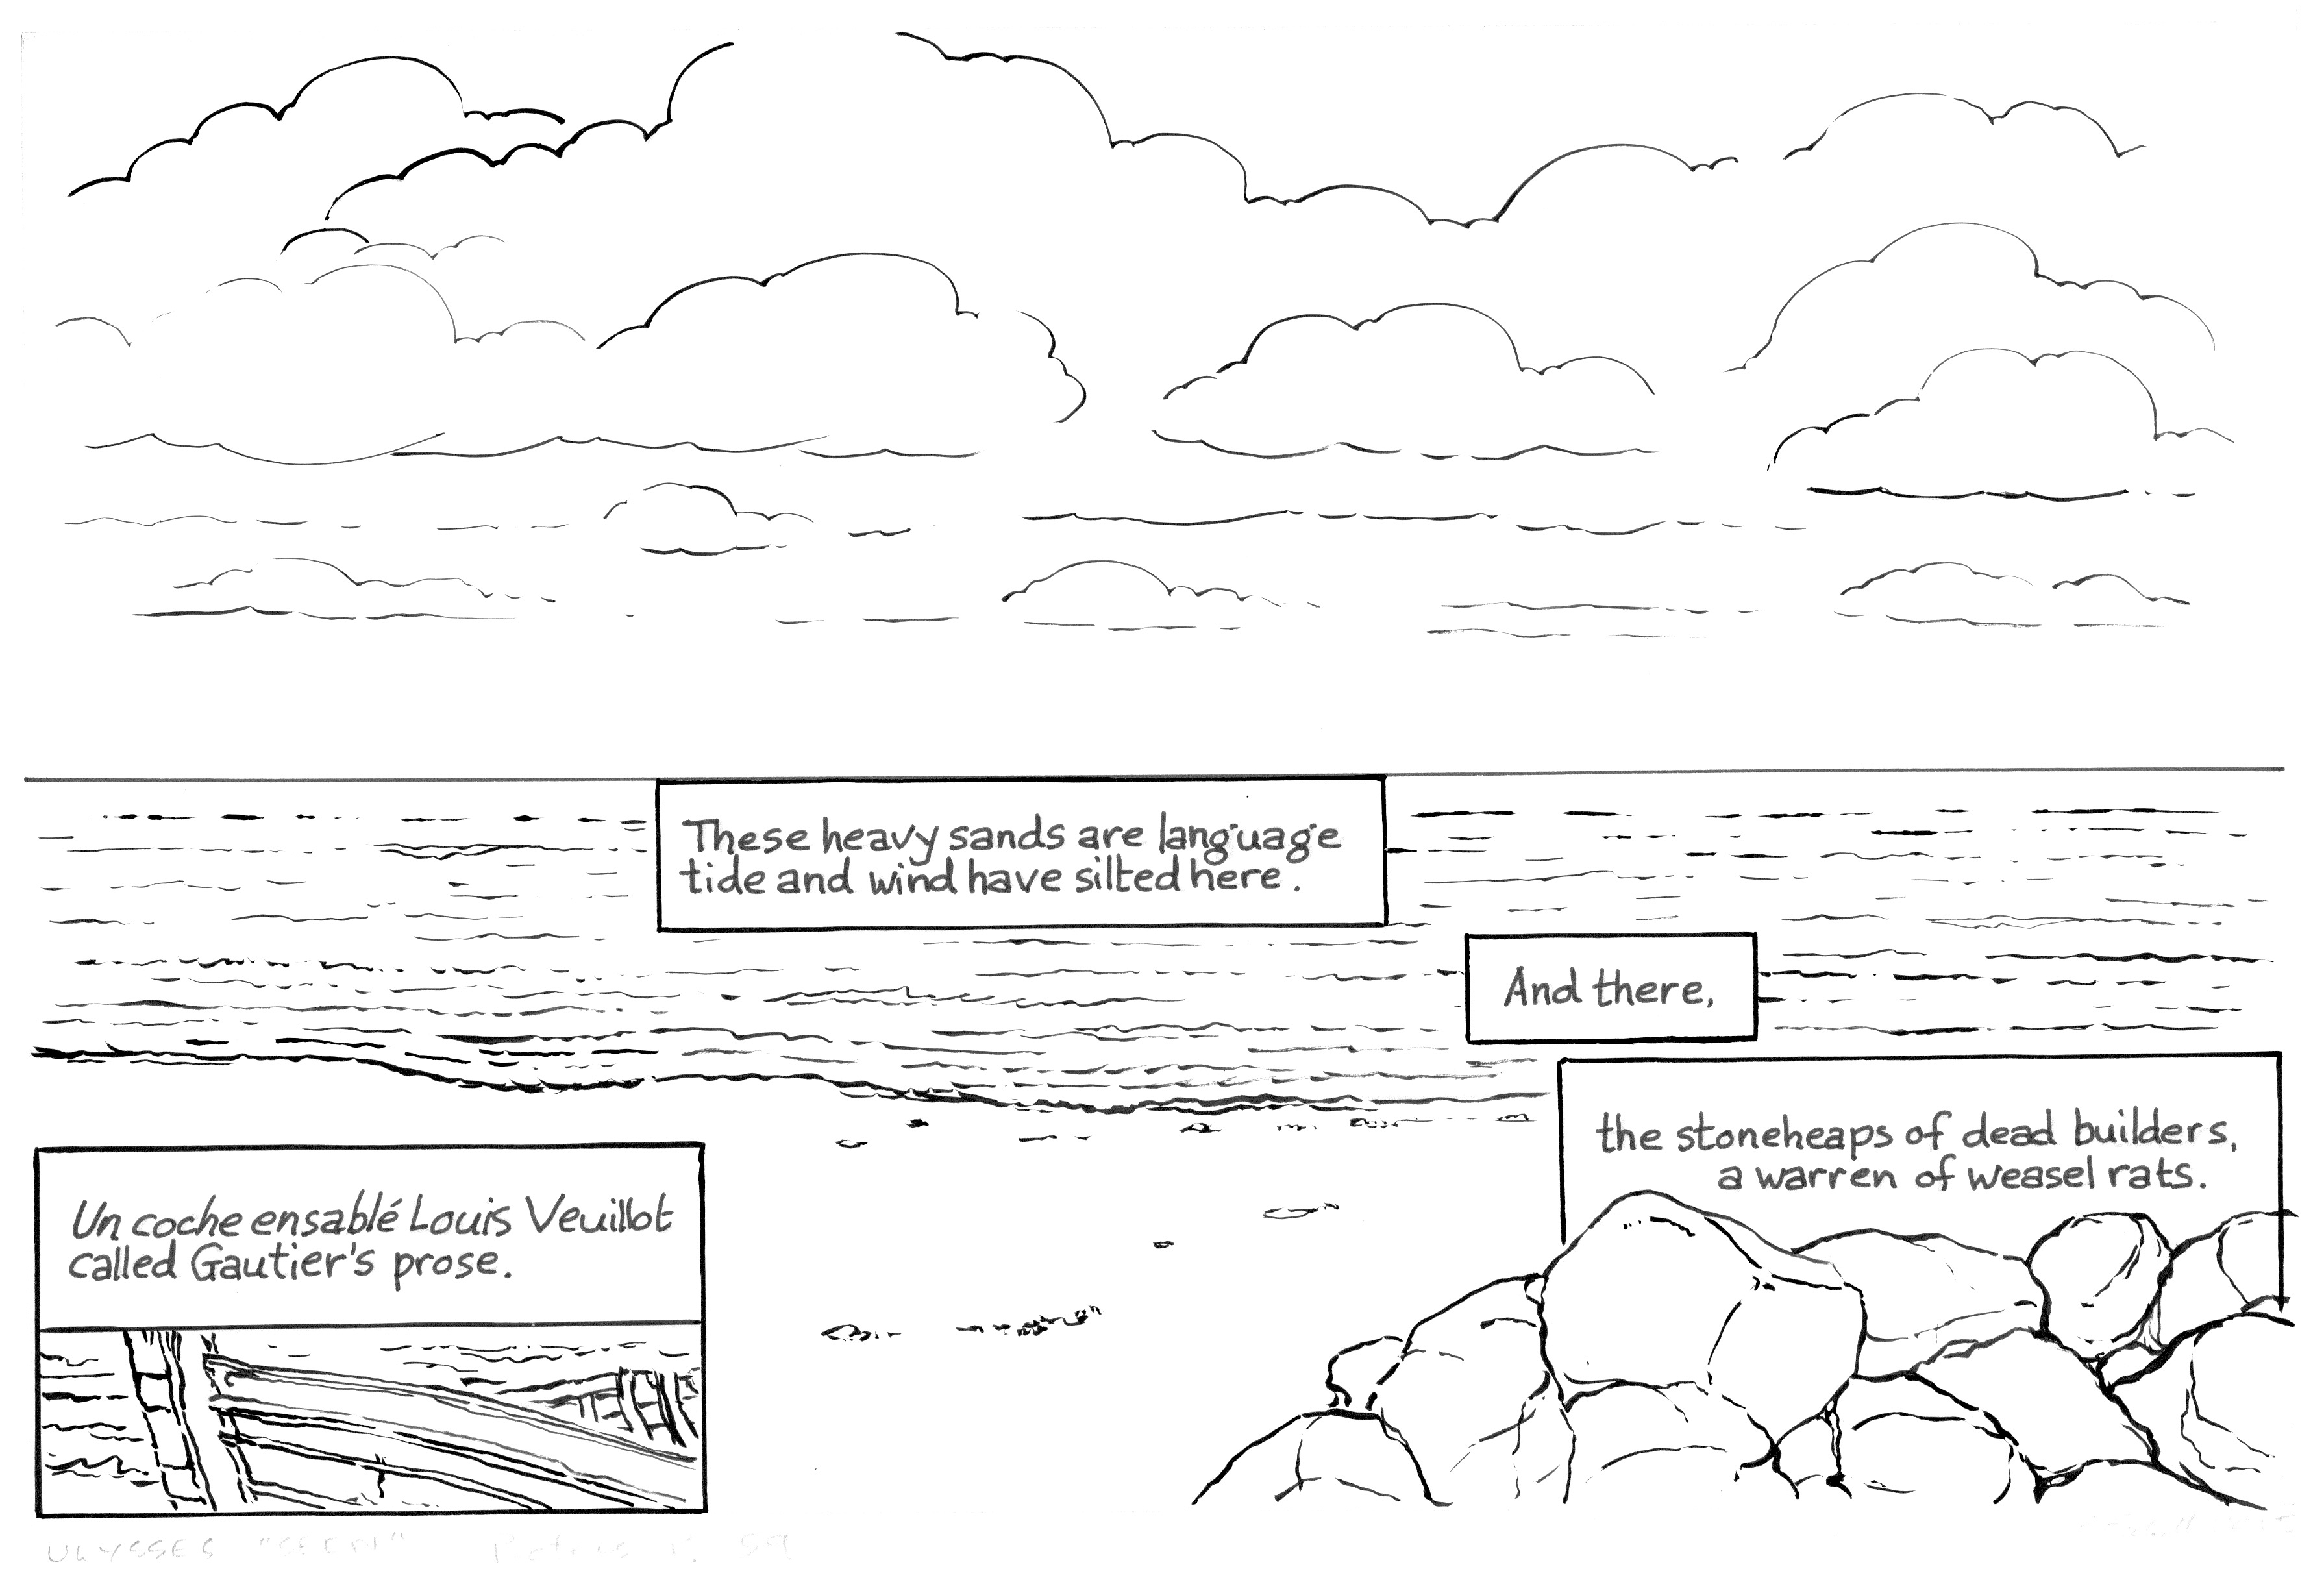 These heavy sands are language
tide and wind have silted here.
And there,
the stoneheaps of dead builders,
a warren of weasel rats.
Un coche ensablé Louis Veuillot
called Gautier's prose.
ULYSSES "SEEN"